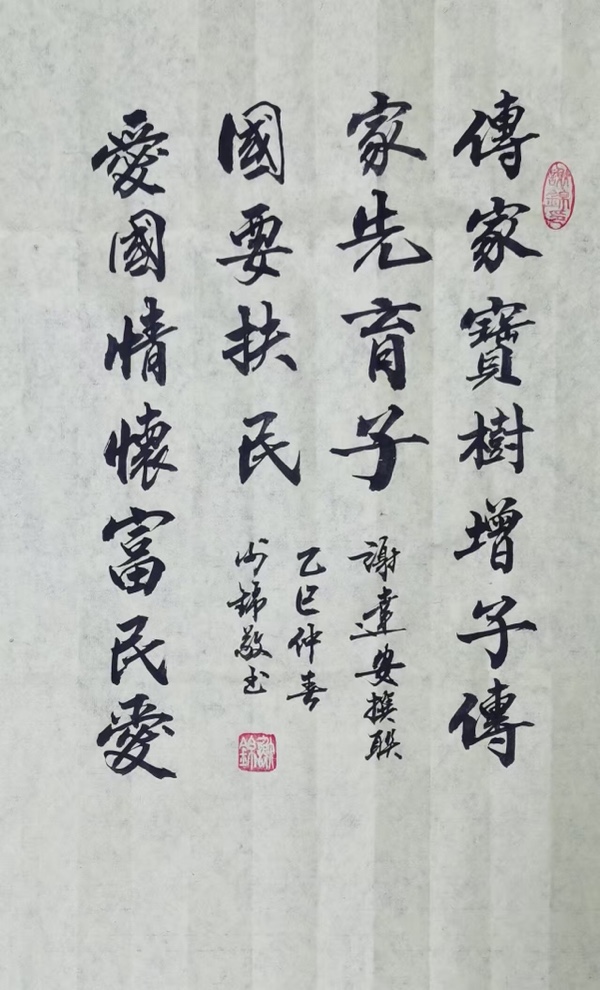 謝錦印
傳家寶樹增子傳
家先育子
謝達安撰联
愛國情懷富民愛
國要扶民
乙巳仲春
錦敬书
謝錦